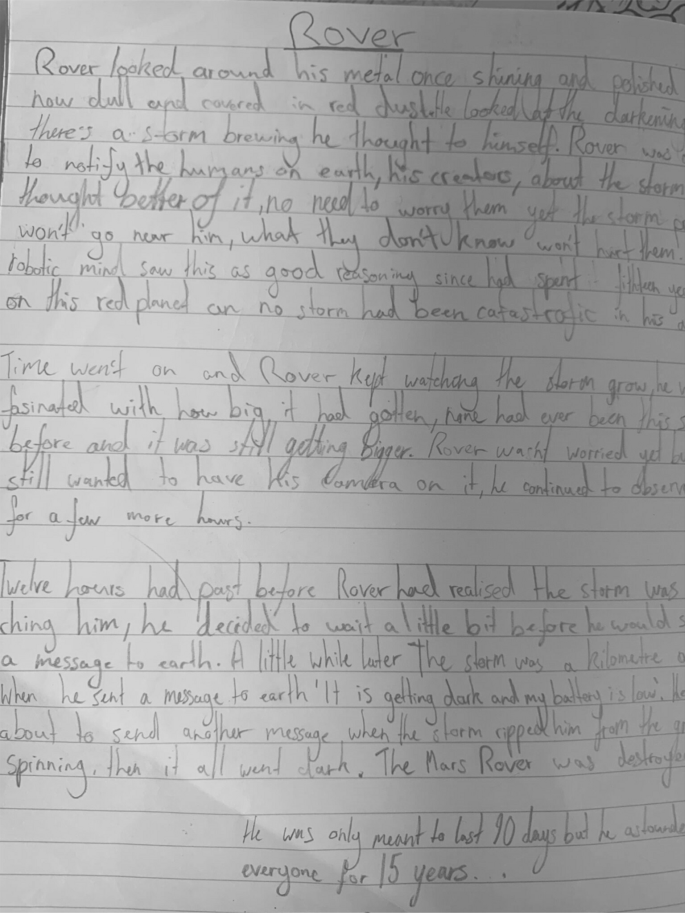 Rover
Rover looked around his metal once shining and polished
now dull and covered in red dust. He looked at the darkening
there's a storm brewing he thought to himself. Rover was
to notify the humans on earth, his creators, about the storm
thought better of it, no need to worry them yet the storm
won't go near him, what they don't know won't hurt them.
robotic mind saw this as good reasoning since had spent fifteen
on this red planet an no storm had been catastrofic in his
Time went on and Rover kept watching the storm grow, he
fasinated with how big it had gotten, none had ever been this
before and it was still getting bigger. Rover wasn't worried yet
still wanted to have his camera on it, he continued to observe
for a few more hours.
Twelve hours had past before Rover had realised the storm was
ching him, he decided to wait a little bit before he would
a message to earth. A little while later the storm was a kilometre
When he sent a message to earth 'It is getting dark and my battery is low'. He
about to send another message when the storm ripped him from the
spinning, then it all went dark. The Mars Rover was destroye
He was only meant to last 90 days but he astounde
everyone for 15 years...